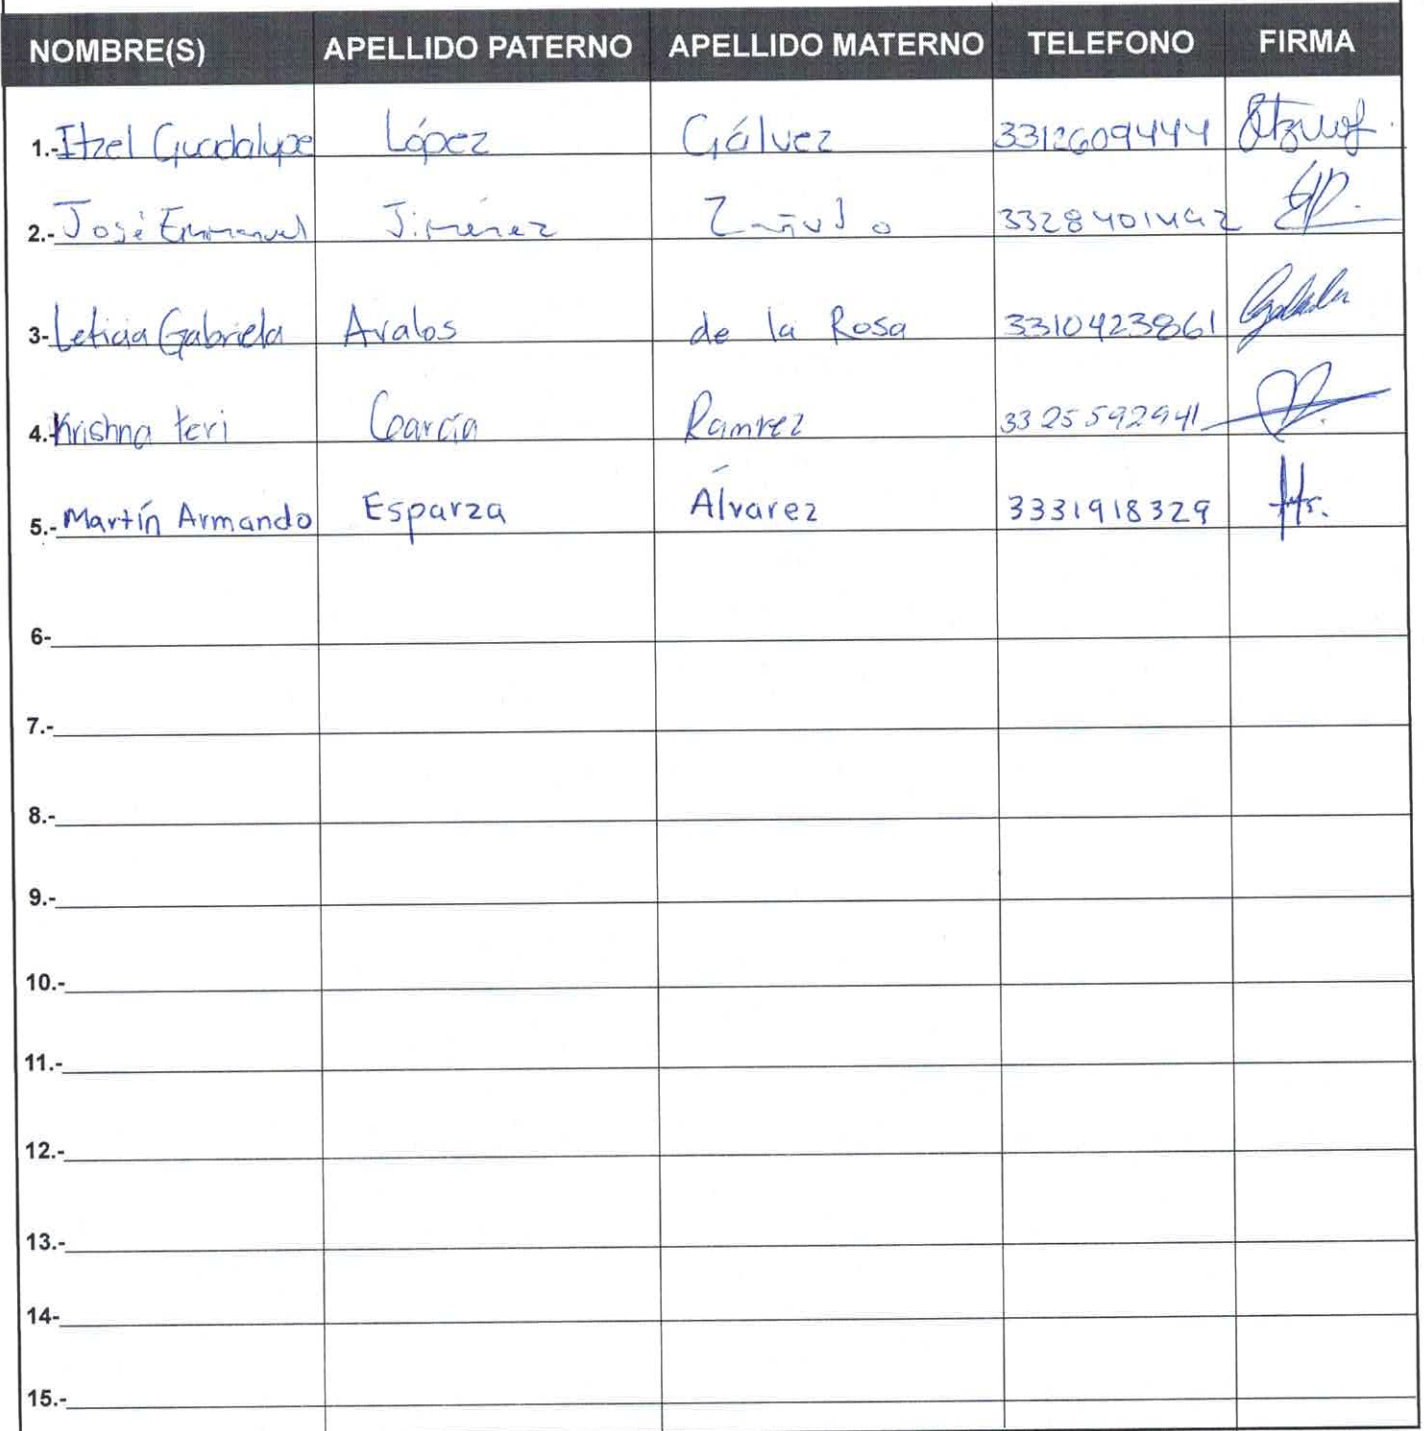 NOMBRE(S) APELLIDO PATERNO APELLIDO MATERNO TELEFONO FIRMA
1.- Itzel Guadalupe López Gálvez 3312609444
2.- José Emmanuel Jiménez Zañudo 3328401492
3- Leticia Gabriela Avalos de la Rosa 3310423861
4.- Krishna Teri García Ramirez 3325592941
5.- Martín Armando Esparza Álvarez 3331918329
6-
7.-
8.-
9.-
10.-
11.-
12.-
13.-
14-
15.-